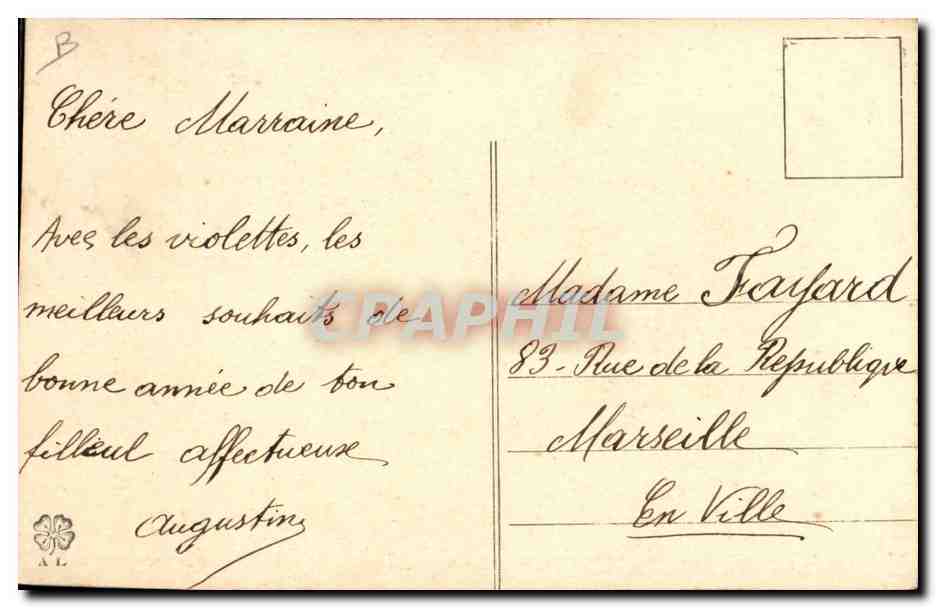 B
Chére Marraine,
Avec les violettes, les
meilleurs souhaits de
bonne année de ton
filleul affectueux
Augustin
A L
CPAPHIL
Madame Fayard
83 - Rue de la Republique
Marseille
En Ville